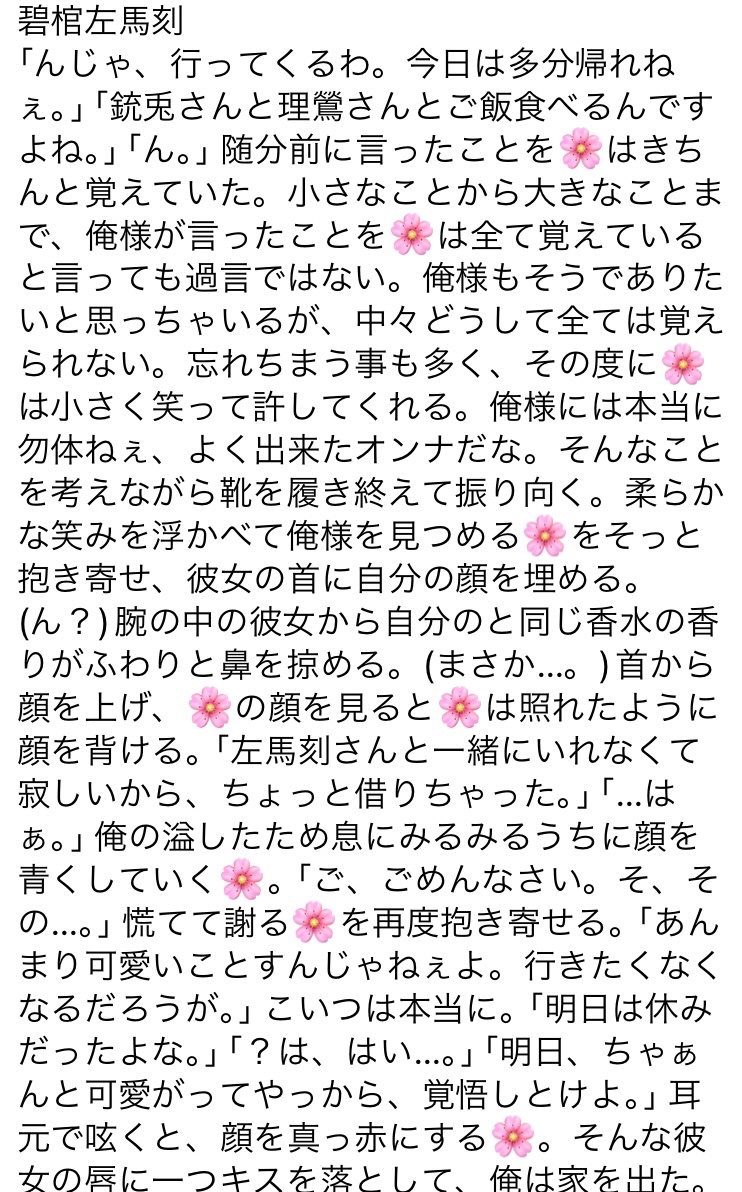 碧棺左馬刻
「んじゃ、行ってくるわ。今日は多分帰れね
ぇ。」「銃兎さんと理鶯さんとご飯食べるんです
よね。」「ん。」随分前に言ったことを🌸はきち
んと覚えていた。小さなことから大きなことま
で、俺様が言ったことを🌸は全て覚えている
と言っても過言ではない。俺様もそうでありた
いと思っちゃいるが、中々どうして全ては覚え
られない。忘れちまう事も多く、その度に🌸
は小さく笑って許してくれる。俺様には本当に
勿体ねぇ、よく出来たオンナだな。そんなこと
を考えながら靴を履き終えて振り向く。柔らか
な笑みを浮かべて俺様を見つめる🌸をそっと
抱き寄せ、彼女の首に自分の顔を埋める。
(ん？)腕の中の彼女から自分のと同じ香水の香
りがふわりと鼻を掠める。(まさか…。)首から
顔を上げ、🌸の顔を見ると🌸は照れたように
顔を背ける。「左馬刻さんと一緒にいれなくて
寂しいから、ちょっと借りちゃった。」「…は
ぁ。」俺の溢したため息にみるみるうちに顔を
青くしていく🌸。「ご、ごめんなさい。そ、そ
の…。」慌てて謝る🌸を再度抱き寄せる。「あん
まり可愛いことすんじゃねぇよ。行きたくなく
なるだろうが。」こいつは本当に。「明日は休み
だったよな。」「？は、はい…。」「明日、ちゃぁ
んと可愛がってやっから、覚悟しとけよ。」耳
元で呟くと、顔を真っ赤にする🌸。そんな彼
女の唇に一つキスを落として、俺は家を出た。